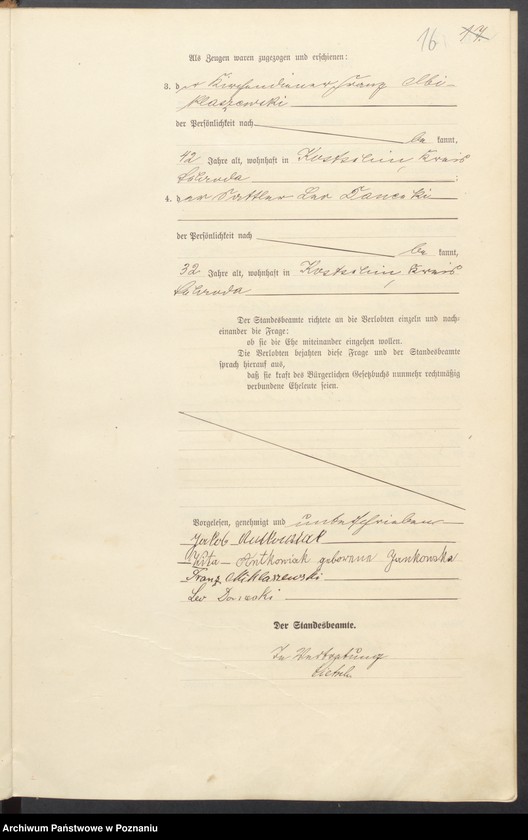 16 17.
Als Zeugen waren zugezogen und erschienen:
3. der Kirchendiener Franz Mi-
klaszewski
der Persönlichkeit nach
be kannt,
42 Jahre alt, wohnhaft in Kostschin, Kreis
Schroda ;
4. der Sattler Leo
der Persönlichkeit nach
be kannt,
32 Jahre alt, wohnhaft in Kostschin, Kreis
Schroda
Der Standesbeamte richtete an die Verlobten einzeln und nach-
einander die Frage:
ob sie die Ehe miteinander eingehen wollen.
Die Verlobten bejahten diese Frage und der Standesbeamte
sprach hierauf aus,
daß sie kraft des Bürgerlichen Gesetzbuchs nunmehr rechtmäßig
verbundene Eheleute seien.
Vorgelesen, genehmigt und unterschrieben
Jakob Antkowiak
Antkowiak geborene Jankowska
Franz Miklaszewski
Leo
Der Standesbeamte.
In Vertretung
Archiwum Państwowe w Poznaniu